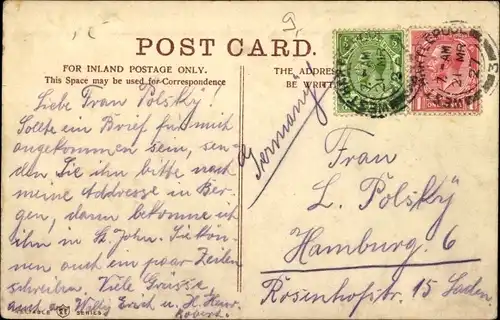 9.
POST CARD.
FOR INLAND POSTAGE ONLY.
This Space may be used for Correspondence
THE ADDRESS
BE WRIT
Liebe Frau Polsky!
Sollte ein Brief für mich
angekommen sein, sen-
den Sie ihn bitte nach
meine Addresse in Ber-
gen, dann bekomme ich
ihn in St. John. Sie kön-
nen auch ein paar Zeilen
schreiben. Viele Grüsse,
auch an Willy Erich u. H.
Robert.
RELIABLE SERIES
Germany
Frau
L. Polsky
Hamburg. 6
Rosenhofstr. 15 Laden.
WEST HARTLEPOOL
7 - AM
21 MR
27